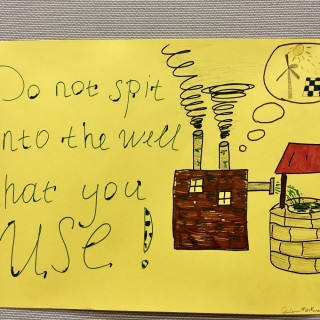 Do not spit
into the well
that you
use!